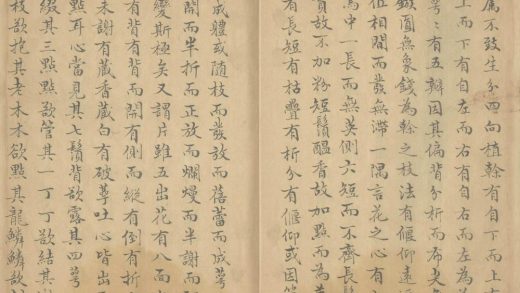 属不致生分四向植榦有自下而上
上而下有自左而右有自右而左為
萼〻有五辨因其偏背分析而布夫
圓無象錢為榦之枝法有偃仰遠
值相閒而發無滯一隅言花之心有
馬中一長而無英側六短而不齊長鬚
實故不加粉短鬚醖香故加點而為
有長短有枯疊有折分有偃仰或因
成體或隨枝而發放而蓓蕾而成萼
開而半折而正放而爛熳而半謝而
變斯極矣又謂片雖五出花有八面
有背有背而開有側而縱有倒有折
未謝有藏香藏白有破萼吐心皆出
點耳心當見其七鬚背欲露其四萼
綴其三點點欲管其一丁丁欲結其
枝欲抱其老木木欲點其龍鱗鱗欲